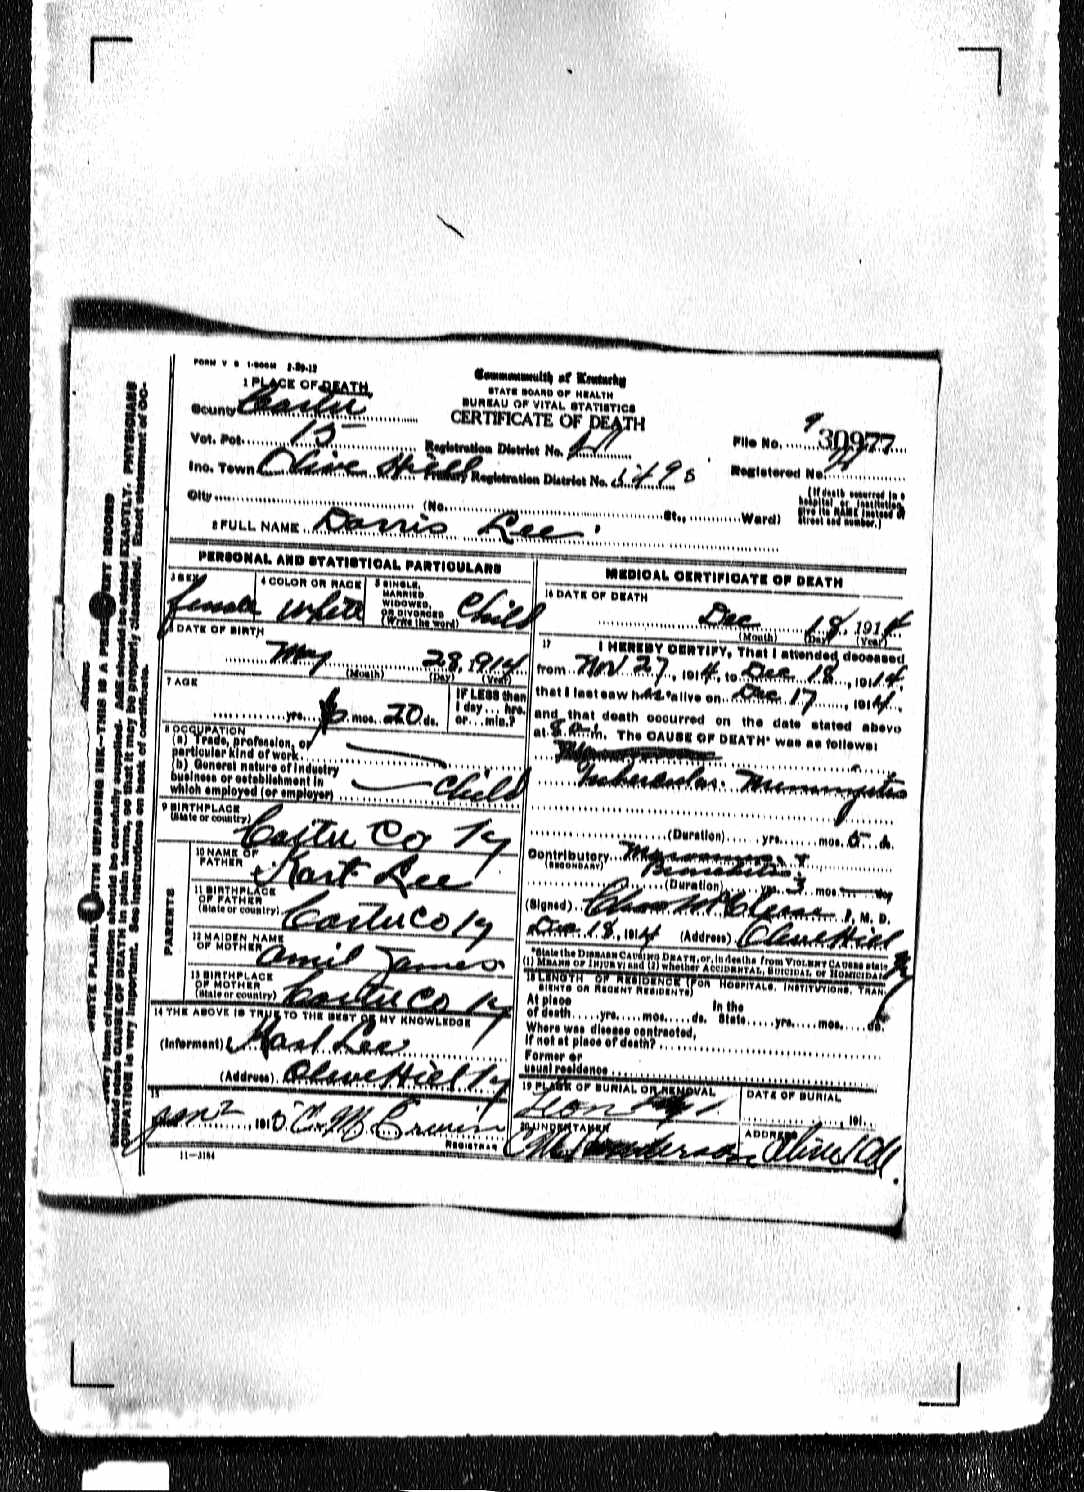 FORM V S 1-500M 2-29-12
1 PLACE OF DEATH
Commonwealth of Kentucky
STATE BOARD OF HEALTH
BUREAU OF VITAL STATISTICS
CERTIFICATE OF DEATH
County Carter
Vot. Pct. 15
Registration District No.
File No. 30977
Inc. Town Olive Hill
Primary Registration District No.
Registered No.
City (No. St., Ward)
(If death occurred in a hospital or institution give its NAME instead of street and number.)
2 FULL NAME Dorris Lee
PERSONAL AND STATISTICAL PARTICULARS
3 SEX female
4 COLOR OR RACE White
5 SINGLE, MARRIED WIDOWED, OR DIVORCED (Write the word) Child
6 DATE OF BIRTH
May 28, 1914
(Month) (Day) (Year)
7 AGE
yrs. 6 mos. 20 ds.
IF LESS than 1 day ... hrs. or ... min.?
8 OCCUPATION
(a) Trade, profession, or
particular kind of work
(b) General nature of industry
business or establishment in
which employed (or employer) Child
9 BIRTHPLACE
(State or country) Carter Co Ky
PARENTS
10 NAME OF FATHER Kart Lee
11 BIRTHPLACE OF FATHER (State or country) Carter Co Ky
12 MAIDEN NAME OF MOTHER Amil James
13 BIRTHPLACE OF MOTHER (State or country) Carter Co Ky
14 THE ABOVE IS TRUE TO THE BEST OF MY KNOWLEDGE
(Informant) Karl Lee
(Address) Olive Hill Ky
15
Jan 2, 1915 C. M. Erwin
REGISTRAR
11-3184
MEDICAL CERTIFICATE OF DEATH
16 DATE OF DEATH
Dec 18, 1914
(Month) (Day) (Year)
17 I HEREBY CERTIFY, That I attended deceased
from Nov 27, 1914, to Dec 18, 1914,
that I last saw h alive on Dec 17, 1914,
and that death occurred on the date stated above
at 8 a. m. The CAUSE OF DEATH* was as follows:
Tubercular Meningitis
(Duration) yrs. mos.
Contributory
(SECONDARY) Bronchitis
(Duration) yrs. 3 mos.
(Signed) M. D.
Dec 18, 1914 (Address) Olive Hill Ky
*State the DISEASE CAUSING DEATH, or, in deaths from VIOLENT CAUSES state
(1) MEANS OF INJURY; and (2) whether ACCIDENTAL, SUICIDAL or HOMICIDAL
18 LENGTH OF RESIDENCE (FOR HOSPITALS, INSTITUTIONS, TRANSIENTS OR RECENT RESIDENTS)
At place of death yrs. mos. ds. In the State yrs. mos. ds.
Where was disease contracted,
if not at place of death?
Former or
usual residence
19 PLACE OF BURIAL OR REMOVAL
DATE OF BURIAL
191
20 UNDERTAKER
Henderson
ADDRESS
WRITE PLAINLY WITH UNFADING INK—THIS IS A PERMANENT RECORD
Every item of information should be carefully supplied. AGE should be stated EXACTLY. PHYSICIANS
should state CAUSE OF DEATH in plain terms, so that it may be properly classified. Exact statement of OC-
CUPATION is very important. See instructions on back of certificate.